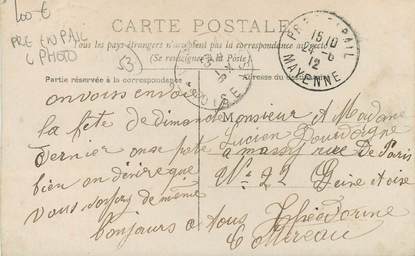 100€
PRE EN PAIL
6 PHOTO
(53)
CARTE POSTALE
Tous les pays étrangers n'acceptent pas la correspondance au recto
(Se renseigner à la Poste)
PRE-EN-PAIL
15/0
4-6
12
MAYENNE
Partie réservée à la correspondance
on vous envoi
la fête de Dimanche
dernier on se porte
bien on désire que
vous soyez de même
bonjours a tous
Adresse du destinataire
Monsieur et Madame
Lucien
a massy rue de Paris
N° 22 Seine et oise